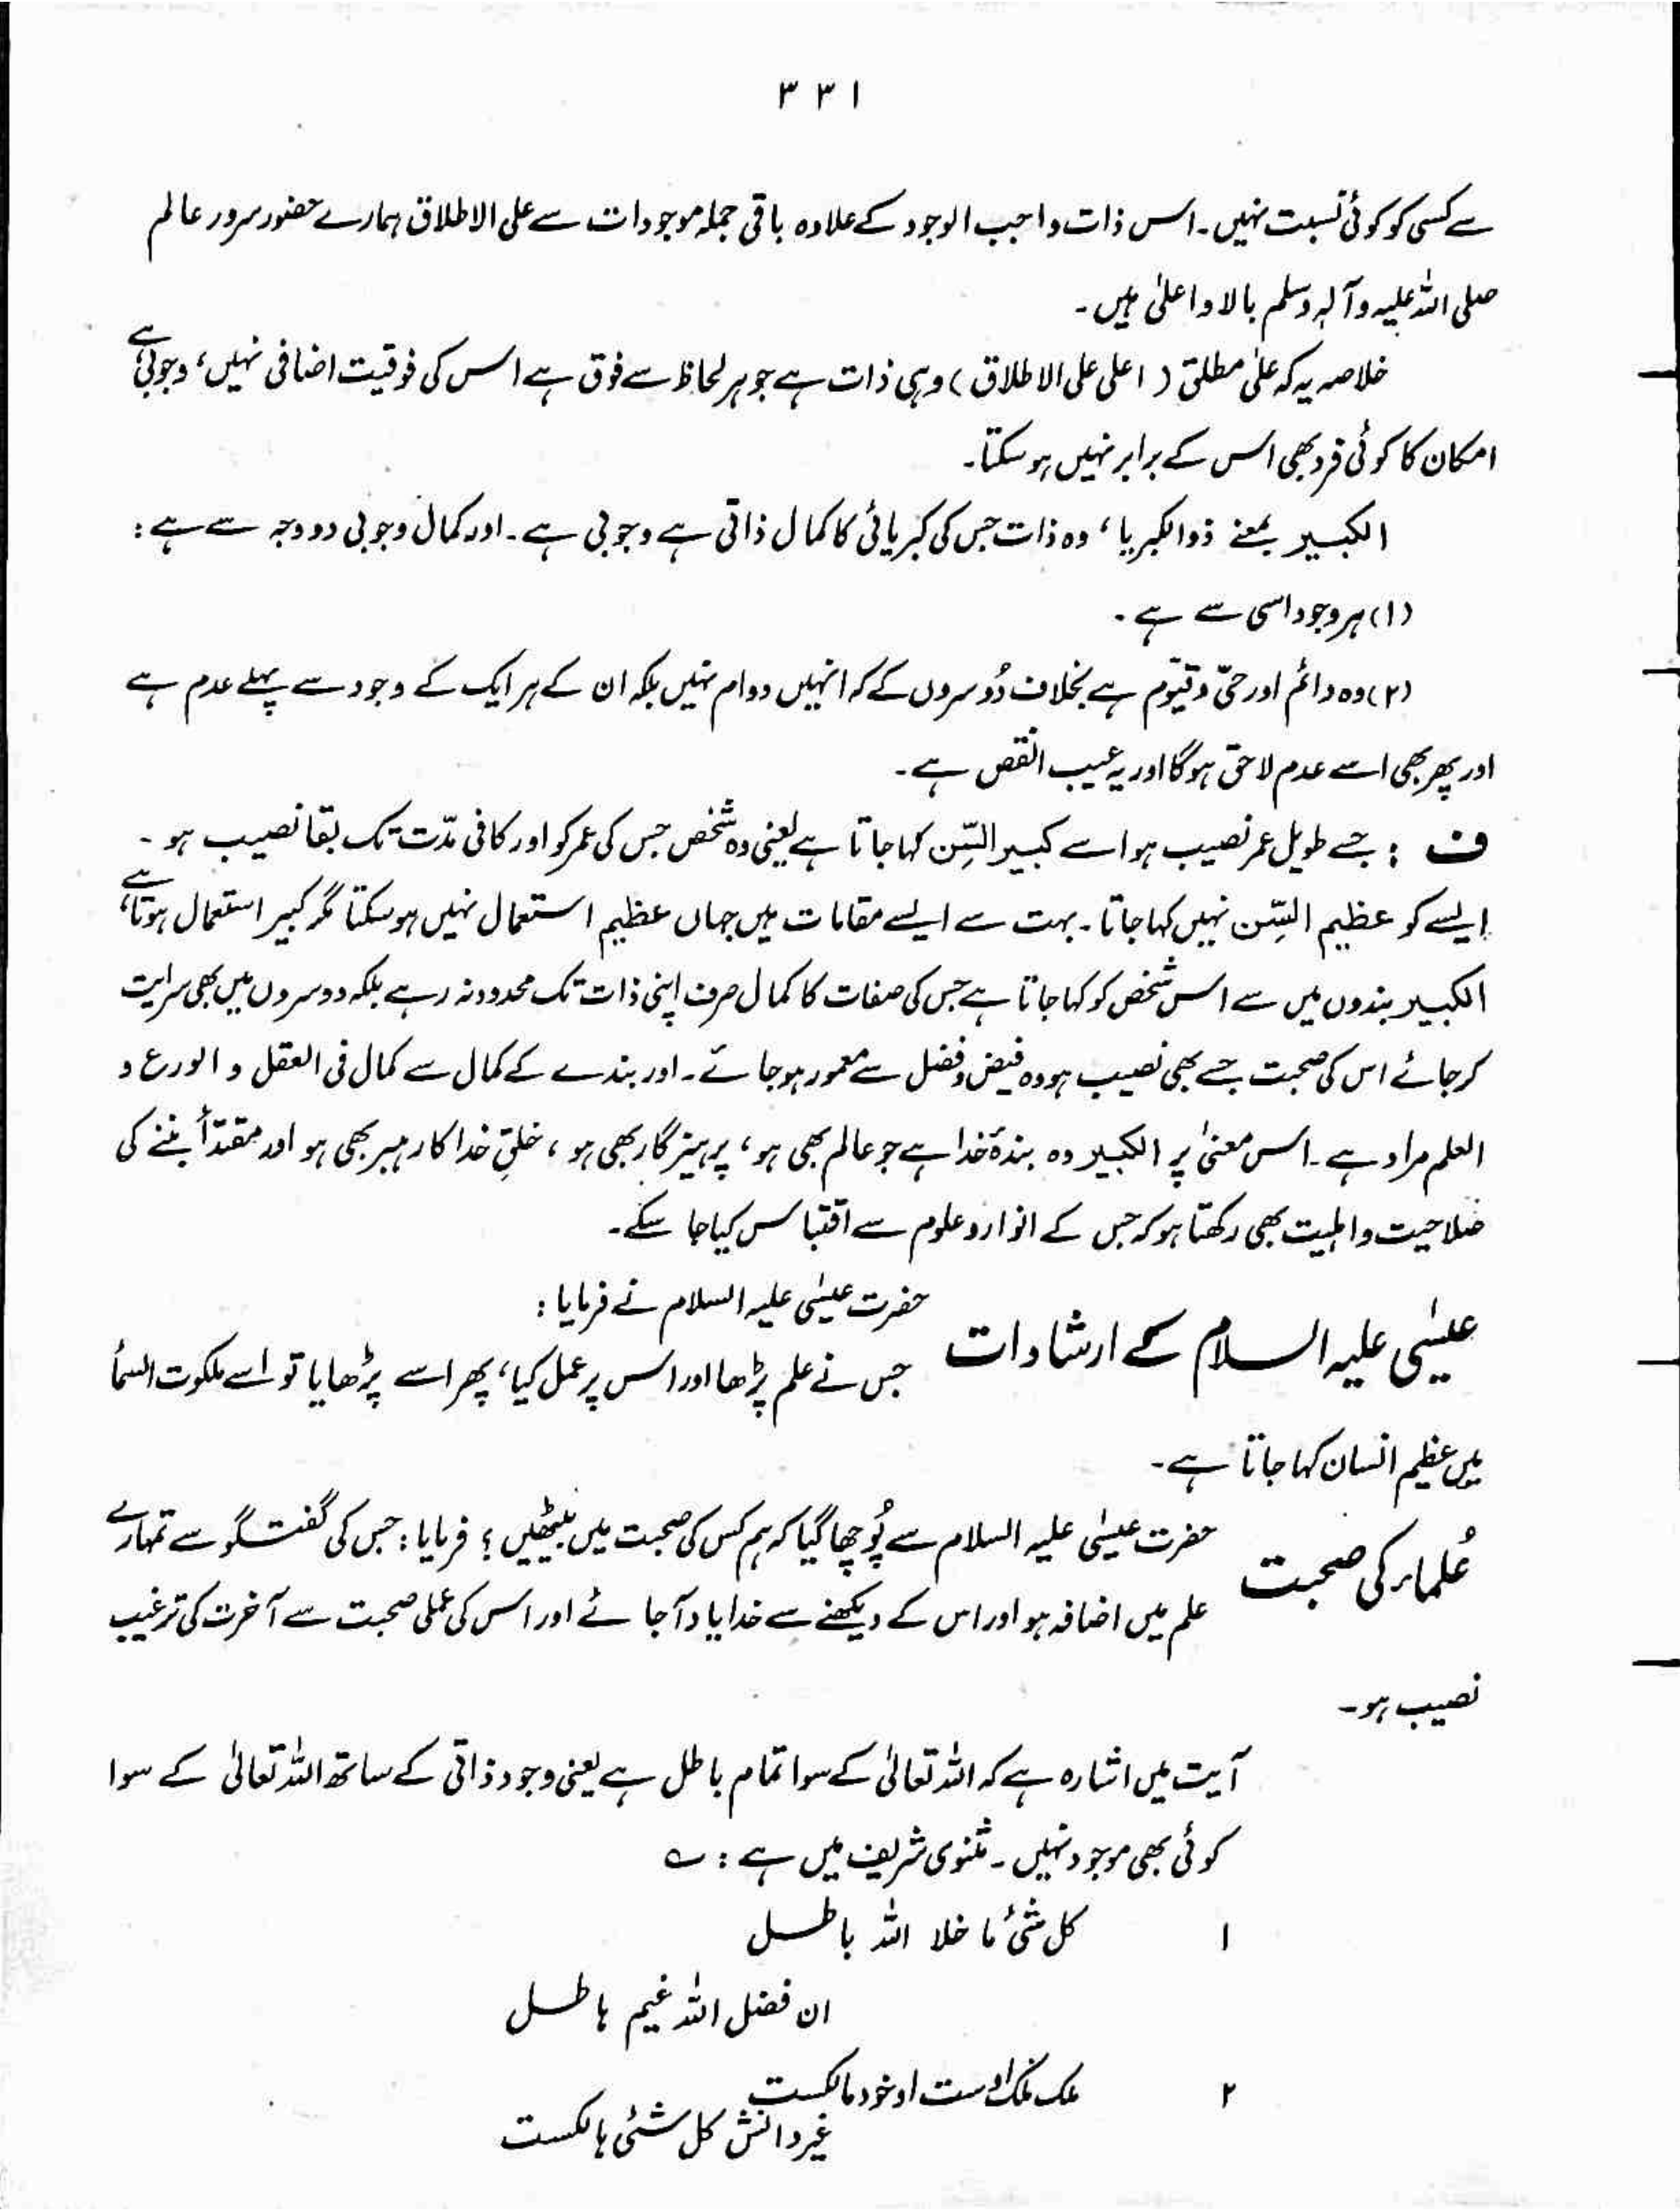 ۳۳۱
سے کسی کو کوئی نسبت نہیں۔ اس ذات واجب الوجود کے علاوہ باقی جملہ موجودات سے علی الاطلاق ہمارے حضور سرور عالم
صلی اللہ علیہ وآلہٖ وسلم بالا و اعلیٰ ہیں۔
خلاصہ یہ کہ علیٰ مطلق (اعلی علی الاطلاق) وہی ذات ہے جو ہر لحاظ سے فوق ہے اس کی فوقیت اضافی نہیں، وجوبی ہے،
امکان کا کوئی فرد بھی اس کے برابر نہیں ہو سکتا۔
الکبیر بمعنے ذوالکبریا، وہ ذات جس کی کبریائی کا کمال ذاتی ہے وجوبی ہے۔ اور کمال وجوبی دو وجہ سے ہے:
(۱) ہر وجود اسی سے ہے۔
(۲) وہ دائم اور حیّ و قیّوم ہے بخلاف دُوسروں کے کہ انہیں دوام نہیں بلکہ ان کے ہر ایک کے وجود سے پہلے عدم ہے
اور پھر بھی اسے عدم لاحق ہوگا اور یہ عیب النقص ہے۔
ف : جسے طویل عمر نصیب ہو اسے کبیر السِّن کہا جاتا ہے یعنی وہ شخص جس کی عمر کو اور کافی مدّت تک بقا نصیب ہو۔
ایسے کو عظیم السِّن نہیں کہا جاتا۔ بہت سے ایسے مقامات ہیں جہاں عظیم استعمال نہیں ہو سکتا مگر کبیر استعمال ہوتا ہے،
الکبیر بندوں میں سے اس شخص کو کہا جاتا ہے جس کی صفات کا کمال صرف اپنی ذات تک محدود نہ رہے بلکہ دوسروں میں بھی سرایت
کر جائے اس کی صحبت جسے بھی نصیب ہو وہ فیض و فضل سے معمور ہو جائے۔ اور بندے کے کمال سے کمال فی العقل و الورع و
العلم مراد ہے۔ اس معنیٰ پر الکبیر وہ بندۂ خدا ہے جو عالم بھی ہو، پرہیزگار بھی ہو، خلقِ خدا کا رہبر بھی ہو اور مقتدأ بننے کی
صلاحیت و اہلیت بھی رکھتا ہو کہ جس کے انوار و علوم سے اقتباس کیا جا سکے۔
عیسٰی علیہ السلام کے ارشادات
حضرت عیسٰی علیہ السلام نے فرمایا:
جس نے علم پڑھا اور اس پر عمل کیا، پھر اسے پڑھایا تو اسے ملکوت السمأ
میں عظیم انسان کہا جاتا ہے۔
عُلماء کی صحبت
حضرت عیسٰی علیہ السلام سے پُوچھا گیا کہ ہم کس کی صحبت میں بیٹھیں؟ فرمایا: جس کی گفتگو سے تمہارے
علم میں اضافہ ہو اور اس کے دیکھنے سے خدا یاد آ جائے اور اس کی عملی صحبت سے آخرت کی ترغیب
نصیب ہو۔
آیت میں اشارہ ہے کہ اللہ تعالیٰ کے سوا تمام باطل ہے یعنی وجود ذاتی کے ساتھ اللہ تعالیٰ کے سوا
کوئی بھی موجود نہیں۔ مثنوی شریف میں ہے: ؎
۱ کل شئ ما خلا اللہ باطل
ان فضل اللہ غیم ہاطل
۲ ملک ملک اوست او خود مالکست
غیر ذاتش کل شئی ہالکست